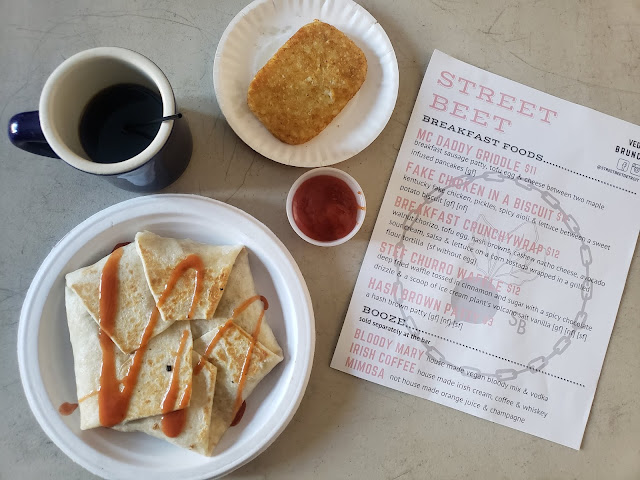 STREET
BEET
VEG
BRUNC
BREAKFAST FOODS
MC DADDY GRIDDLE $11
breakfast sausage patty, tofu egg & cheese between two maple
infused pancakes [gf]
FAKE CHICKEN IN A BISCUIT
kentucky fake chicken, pickles, spicy aioli & lettuce between a sweet
potato biscuit [gf] [nf]
BREAKFAST CRUNCHYWRAP $12
walnut chorizo, tofu egg, hash browns, cashew nacho cheese, avocado
sour cream, salsa & lettuce on a corn tostada wrapped in a grilled
flour tortilla [sf without egg]
CHURRO
deep fried waffle tossed in cinnamon and sugar with a spicy chocolate
drizzle & a scoop of ice cream plant's volcano salt vanilla [gf] [nf] [sf]
HASH BROWN
a hash brown patty [gf] [nf] [sf]
SB
BOOZE
sold separately at the bar
BLOODY MARY house made vegan bloody mix & vodka
IRISH COFFEE house made irish cream, coffee & whiskey
MIMOSA not house made orange juice & champagne